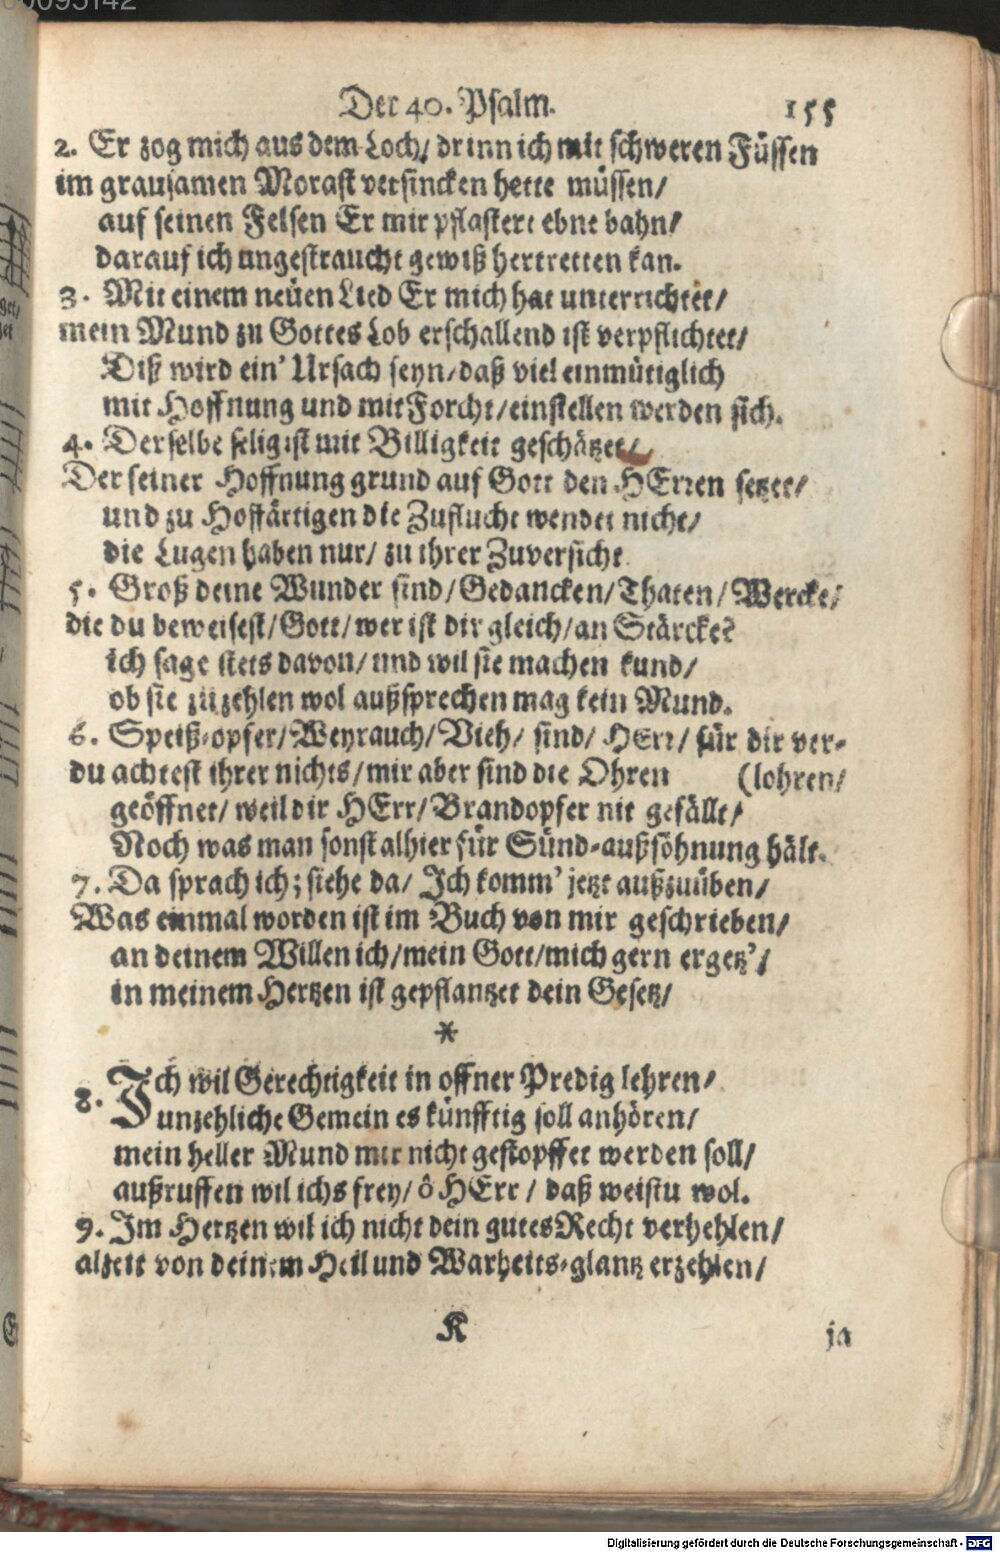 Der 40. Psalm. 155
2. Er zog mich aus dem Loch/ drinn ich mit schweren Füssen
im grausamen Morast versincken hette müssen/
auf seinen Felsen Er mir pflastert ebne bahn/
darauf ich ungestraucht gewiß hertretten kan.
3. Mit einem neüen Lied Er mich hat unterrichtet/
mein Mund zu Gottes Lob erschallend ist verpflichtet/
Diß wird ein' Ursach seyn/ daß viel einmütiglich
mit Hoffnung und mit Forcht/ einstellen werden sich.
4. Derselbe selig ist mit Billigkeit geschätzet/
Der seiner Hoffnung grund auf Gott den HErren setzet/
und zu Hoffärtigen die Zuflucht wendet nicht/
die Lugen haben nur/ zu ihrer Zuversicht
5. Groß deine Wunder sind/ Gedancken/ Thaten/ Wercke/
die du beweisest/ Gott/ wer ist dir gleich/ an Stärcke?
ich sage stets davon/ und wil sie machen kund/
ob sie zu zehlen wol außsprechen mag kein Mund.
6. Speiß-opfer/ Weyrauch/ Vieh/ sind/ HErr/ für dir ver-
du achtest ihrer nichts/ mir aber sind die Ohren (lohren/
geöffnet/ weil dir HErr/ Brandopfer nit gefällt/
Noch was man sonst alhier für Sünd-außsöhnung hält.
7. Da sprach ich; siehe da/ Ich komm' jetzt außzuüben/
Was einmal worden ist im Buch von mir geschrieben/
an deinem Willen ich/ mein Gott/ mich gern ergetz'/
in meinem Hertzen ist gepflantzet dein Gesetz/
*
8. Ich wil Gerechtigkeit in offner Predig lehren/
unzehliche Gemein es künfftig soll anhören/
mein heller Mund mir nicht gestopffet werden soll/
außruffen wil ichs frey/ ô HErr/ daß weistu wol.
9. Im Hertzen wil ich nicht dein gutes Recht verhehlen/
alzeit von deinem Heil und Warheits-glantz erzehlen/
K ja
Digitalisierung gefördert durch die Deutsche Forschungsgemeinschaft - DFG